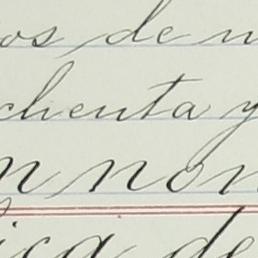 os de n
chenta y
n non
ica de